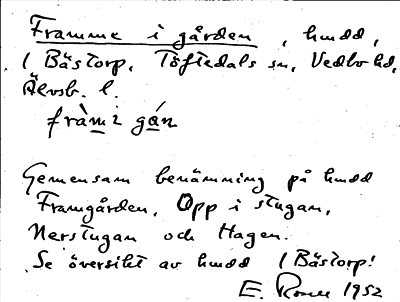 Framme i gården, hmdd,
1 Bästorp, Töftedals sn, Vedbo hd,
Älvsb. l.
fràm i gán
Gemensam benämning på hmdd
Framgården, Opp i stugan,
Nerstugan och Hagen.
Se översikt av hmdd 1 Bästorp!
E. 1952